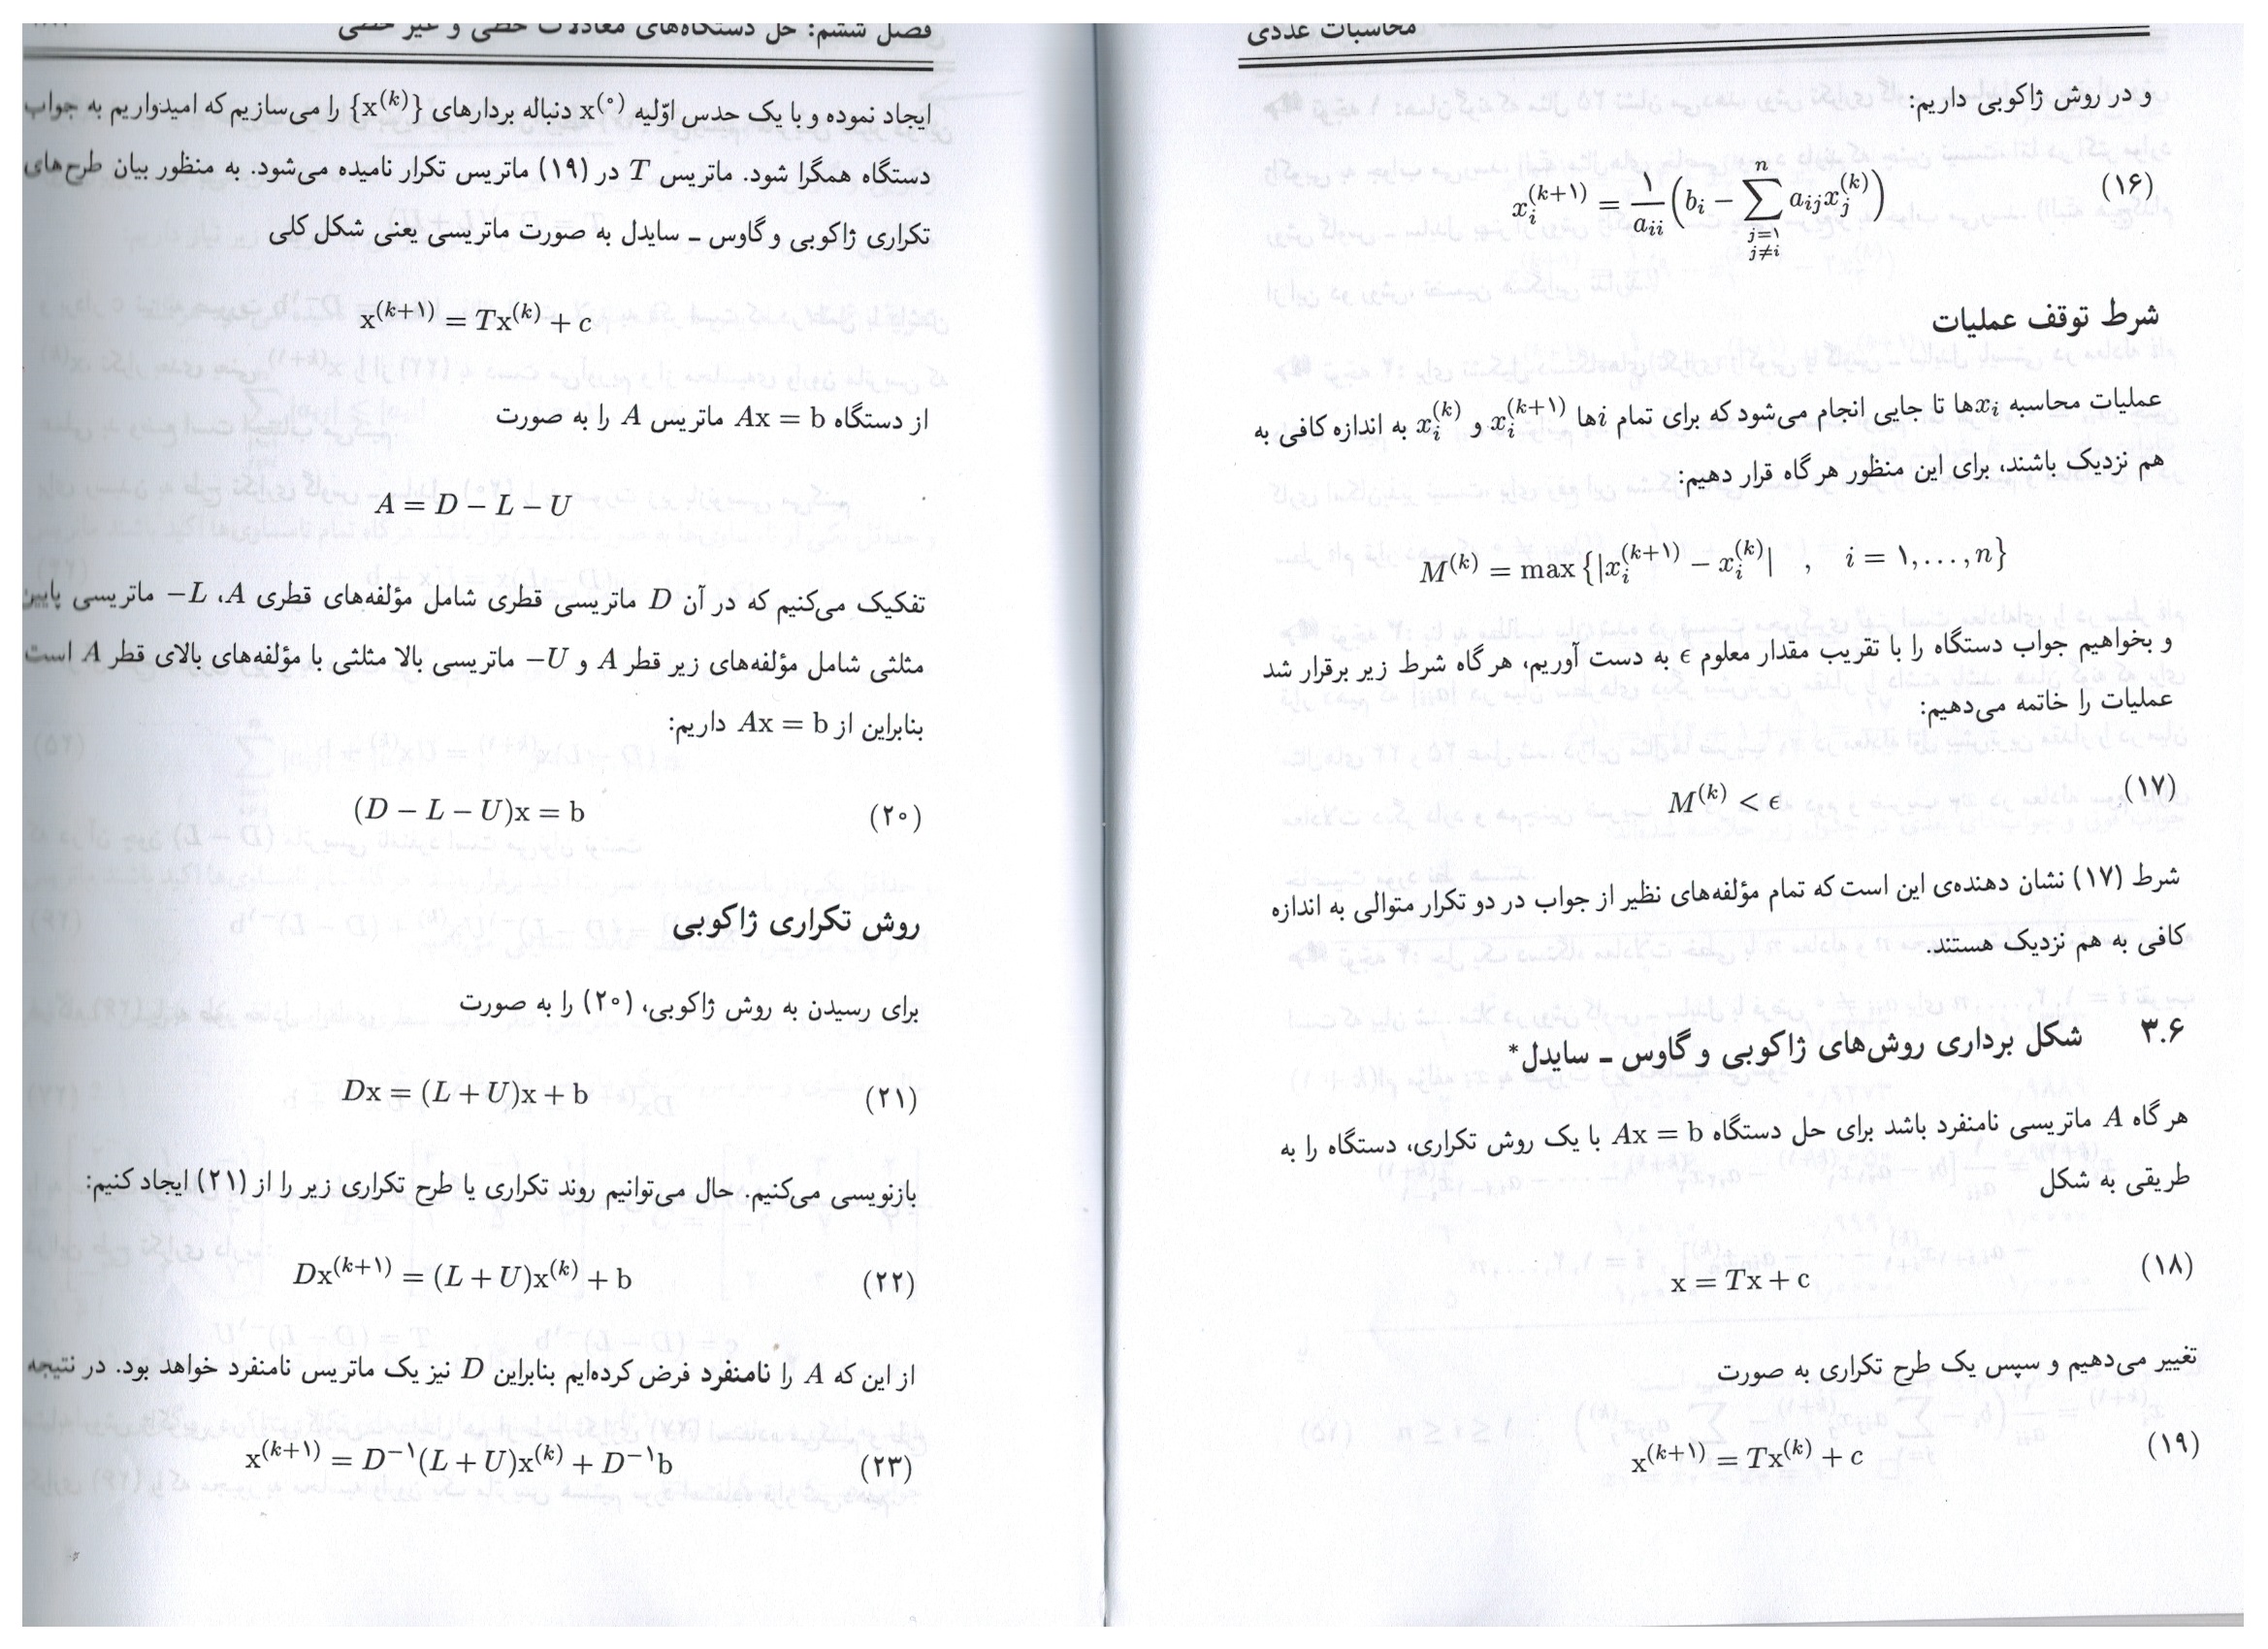 محاسبات عددی
و در روش ژاکوبی داریم:
x_i^{(k+۱)} = \frac{۱}{a_{ii}} ( b_i − \sum_{j=۱, j≠i}^{n} a_{ij} x_j^{(k)} ) (۱۶)
شرط توقف عملیات
عملیات محاسبه x_i‌ها تا جایی انجام می‌شود که برای تمام iها x_i^{(k+۱)} و x_i^{(k)} به اندازه کافی به
هم نزدیک باشند، برای این منظور هر گاه قرار دهیم:
M^{(k)} = max {|x_i^{(k+۱)} − x_i^{(k)}| , i = ۱, . . . , n}
و بخواهیم جواب دستگاه را با تقریب مقدار معلوم ϵ به دست آوریم، هر گاه شرط زیر برقرار شد
عملیات را خاتمه می‌دهیم:
M^{(k)} < ϵ (۱۷)
شرط (۱۷) نشان دهنده‌ی این است که تمام مؤلفه‌های نظیر از جواب در دو تکرار متوالی به اندازه
کافی به هم نزدیک هستند.
۳.۶ شکل برداری روش‌های ژاکوبی و گاوس ـ سایدل*
هر گاه A ماتریسی نامنفرد باشد برای حل دستگاه Ax = b با یک روش تکراری، دستگاه را به
طریقی به شکل
x = Tx + c (۱۸)
تغییر می‌دهیم و سپس یک طرح تکراری به صورت
x^{(k+۱)} = Tx^{(k)} + c (۱۹)
فصل ششم: حل دستگاه‌های معادلات خطی و غیر خطی
ایجاد نموده و با یک حدس اوّلیه x^{(۰)} دنباله بردارهای {x^{(k)}} را می‌سازیم که امیدواریم به جواب
دستگاه همگرا شود. ماتریس T در (۱۹) ماتریس تکرار نامیده می‌شود. به منظور بیان طرح‌های
تکراری ژاکوبی و گاوس ـ سایدل به صورت ماتریسی یعنی شکل کلی
x^{(k+۱)} = Tx^{(k)} + c
از دستگاه Ax = b ماتریس A را به صورت
A = D − L − U
تفکیک می‌کنیم که در آن D ماتریسی قطری شامل مؤلفه‌های قطری A، −L ماتریسی پایین
مثلثی شامل مؤلفه‌های زیر قطر A و −U ماتریسی بالا مثلثی با مؤلفه‌های بالای قطر A است
بنابراین از Ax = b داریم:
(D − L − U)x = b (۲۰)
روش تکراری ژاکوبی
برای رسیدن به روش ژاکوبی، (۲۰) را به صورت
Dx = (L + U)x + b (۲۱)
بازنویسی می‌کنیم. حال می‌توانیم روند تکراری یا طرح تکراری زیر را از (۲۱) ایجاد کنیم:
Dx^{(k+۱)} = (L + U)x^{(k)} + b (۲۲)
از این که A را نامنفرد فرض کرده‌ایم بنابراین D نیز یک ماتریس نامنفرد خواهد بود. در نتیجه
x^{(k+۱)} = D^{−۱}(L + U)x^{(k)} + D^{−۱}b (۲۳)